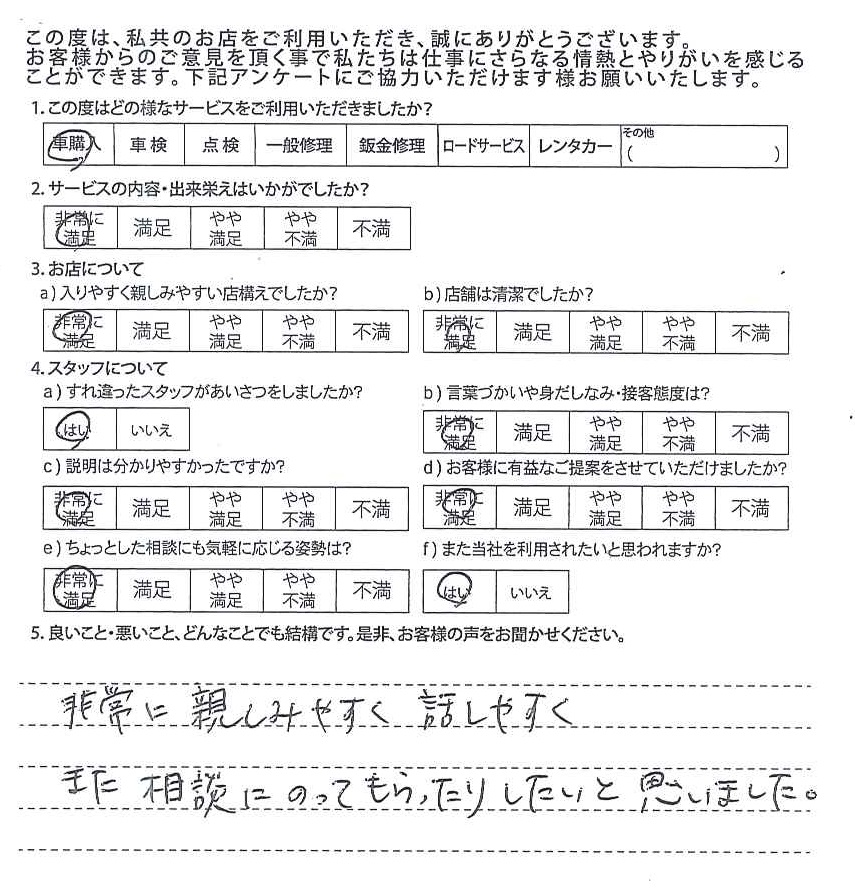 この度は、私共のお店をご利用いただき、誠にありがとうございます。
お客様からのご意見を頂く事で私たちは仕事にさらなる情熱とやりがいを感じる
ことができます。下記アンケートにご協力いただけます様お願いいたします。
1.この度はどの様なサービスをご利用いただきましたか?
車購入 車検 点検 一般修理 鈑金修理 ロードサービス レンタカー その他 ( )
2.サービスの内容・出来栄えはいかがでしたか?
非常に満足 満足 やや満足 やや不満 不満
3.お店について
a)入りやすく親しみやすい店構えでしたか?
非常に満足 満足 やや満足 やや不満 不満
b)店舗は清潔でしたか?
非常に満足 満足 やや満足 やや不満 不満
4.スタッフについて
a)すれ違ったスタッフがあいさつをしましたか?
はい いいえ
b)言葉づかいや身だしなみ・接客態度は?
非常に満足 満足 やや満足 やや不満 不満
c)説明は分かりやすかったですか?
非常に満足 満足 やや満足 やや不満 不満
d)お客様に有益なご提案をさせていただけましたか?
非常に満足 満足 やや満足 やや不満 不満
e)ちょっとした相談にも気軽に応じる姿勢は?
非常に満足 満足 やや満足 やや不満 不満
f)また当社を利用されたいと思われますか?
はい いいえ
5.良いこと・悪いこと、どんなことでも結構です。是非、お客様の声をお聞かせください。
非常に 親しみやすく 話しやすく
また 相談に のってもらったりしたいと 思いました。